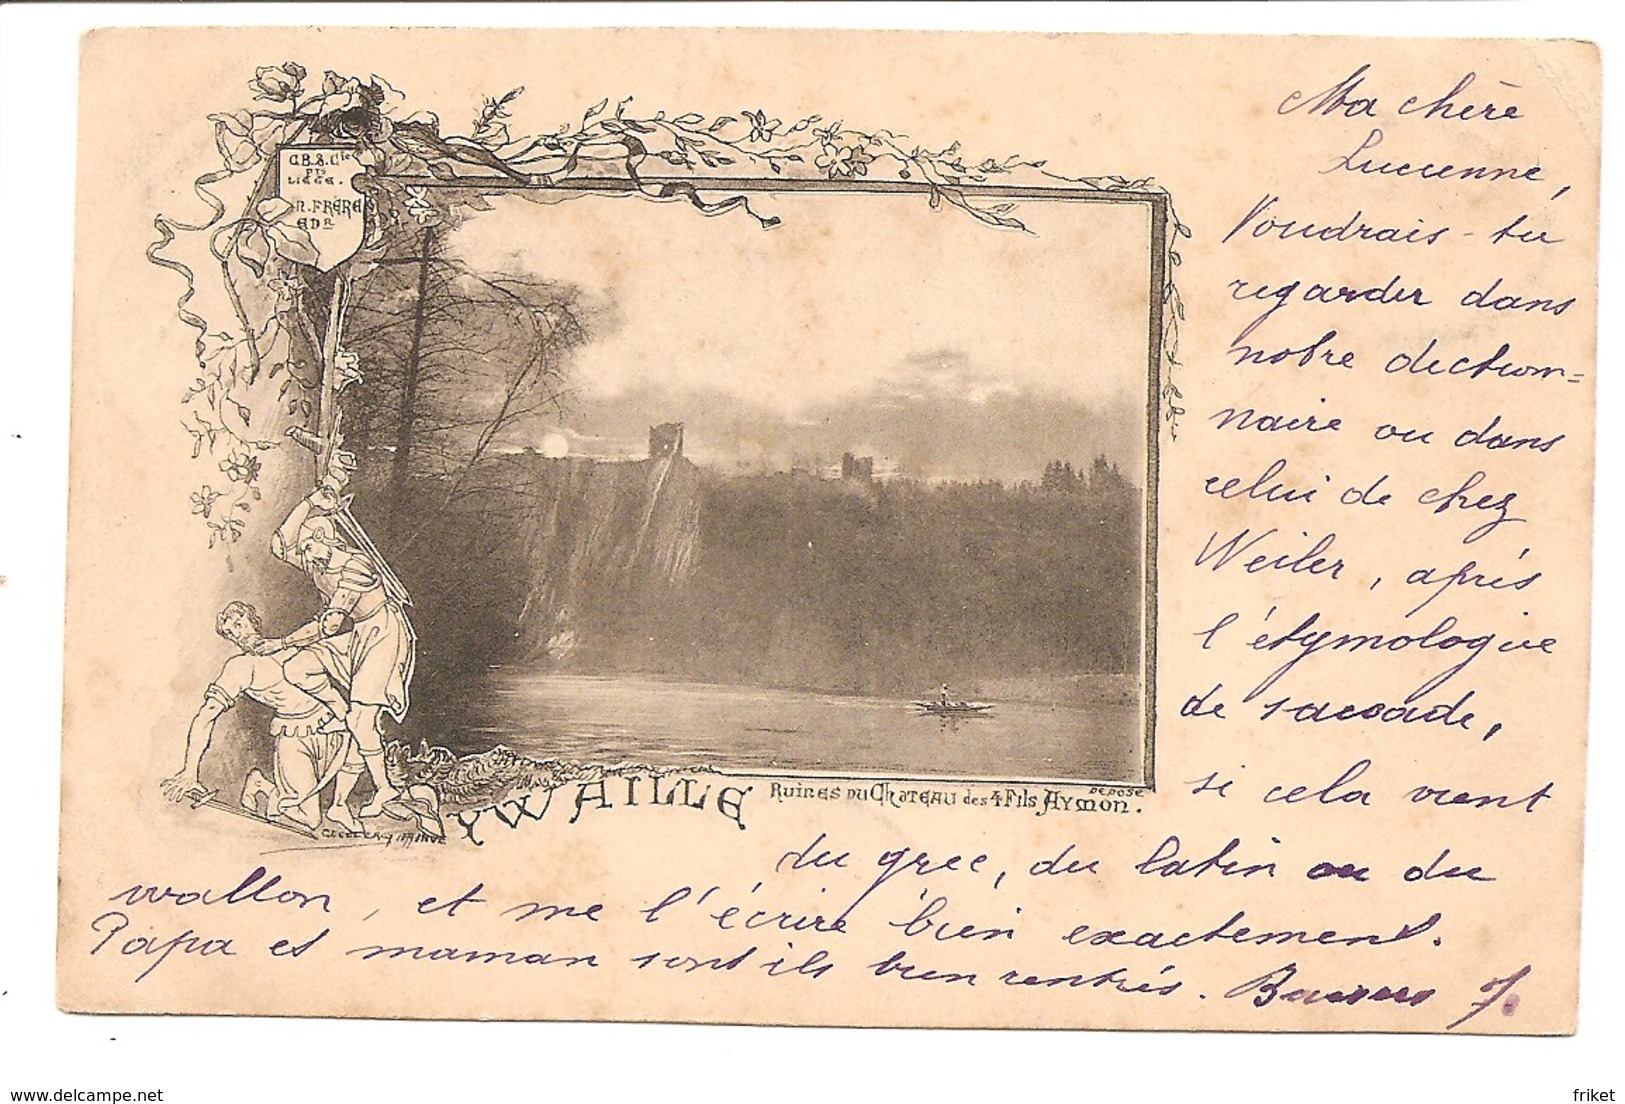 C.B.&.Cie
PTS
LIEGE.
N. FRERE
EDR
Ma chère
Lucienne,
Voudrais-tu
regarder dans
notre diction=
naire ou dans
celui de chez
Weiler, après
l'étymologie
de saccade,
si cela vient
du grec, du latin ou du
wallon, et me l'écrire bien exactement.
Papa et maman sont ils bien rentrés.
AYWAILLE RUINES DU CHATEAU des 4 FILS AYMON.
DEPOSE
www.delcampe.net
friket